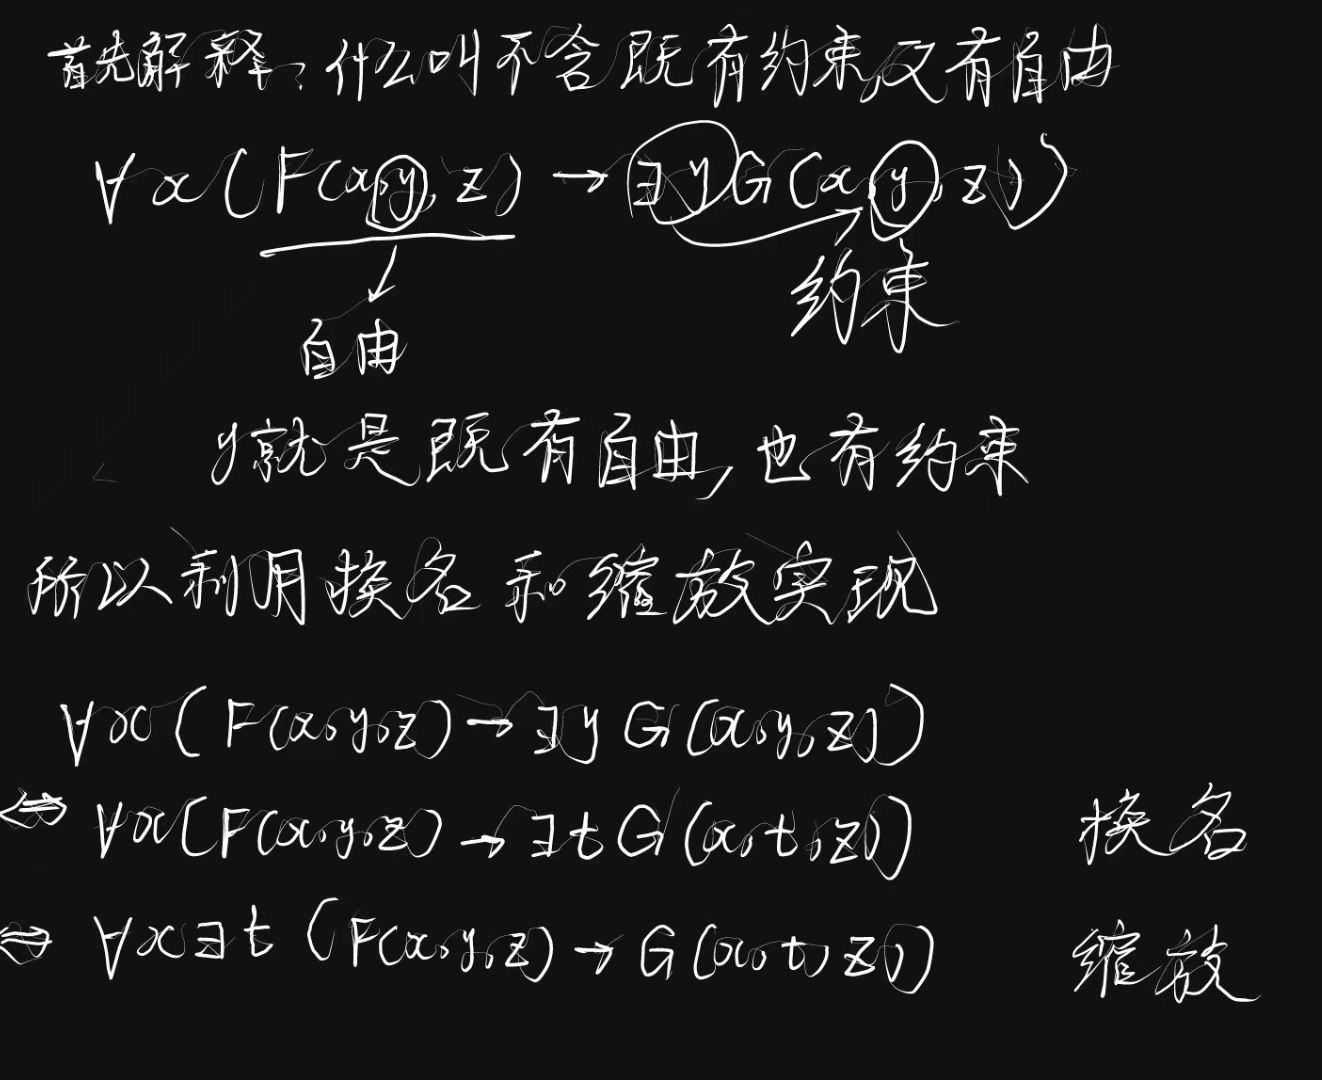 首先解释:什么叫不含既有约束,又有自由
∀x(F(x,y,z)→∃yG(x,y,z))
约束
自由
y就是既有自由,也有约束
所以利用换名和缩放实现
∀x(F(x,y,z)→∃yG(x,y,z))
⇔ ∀x(F(x,y,z)→∃tG(x,t,z)) 换名
⇔ ∀x∃t(F(x,y,z)→G(x,t,z)) 缩放